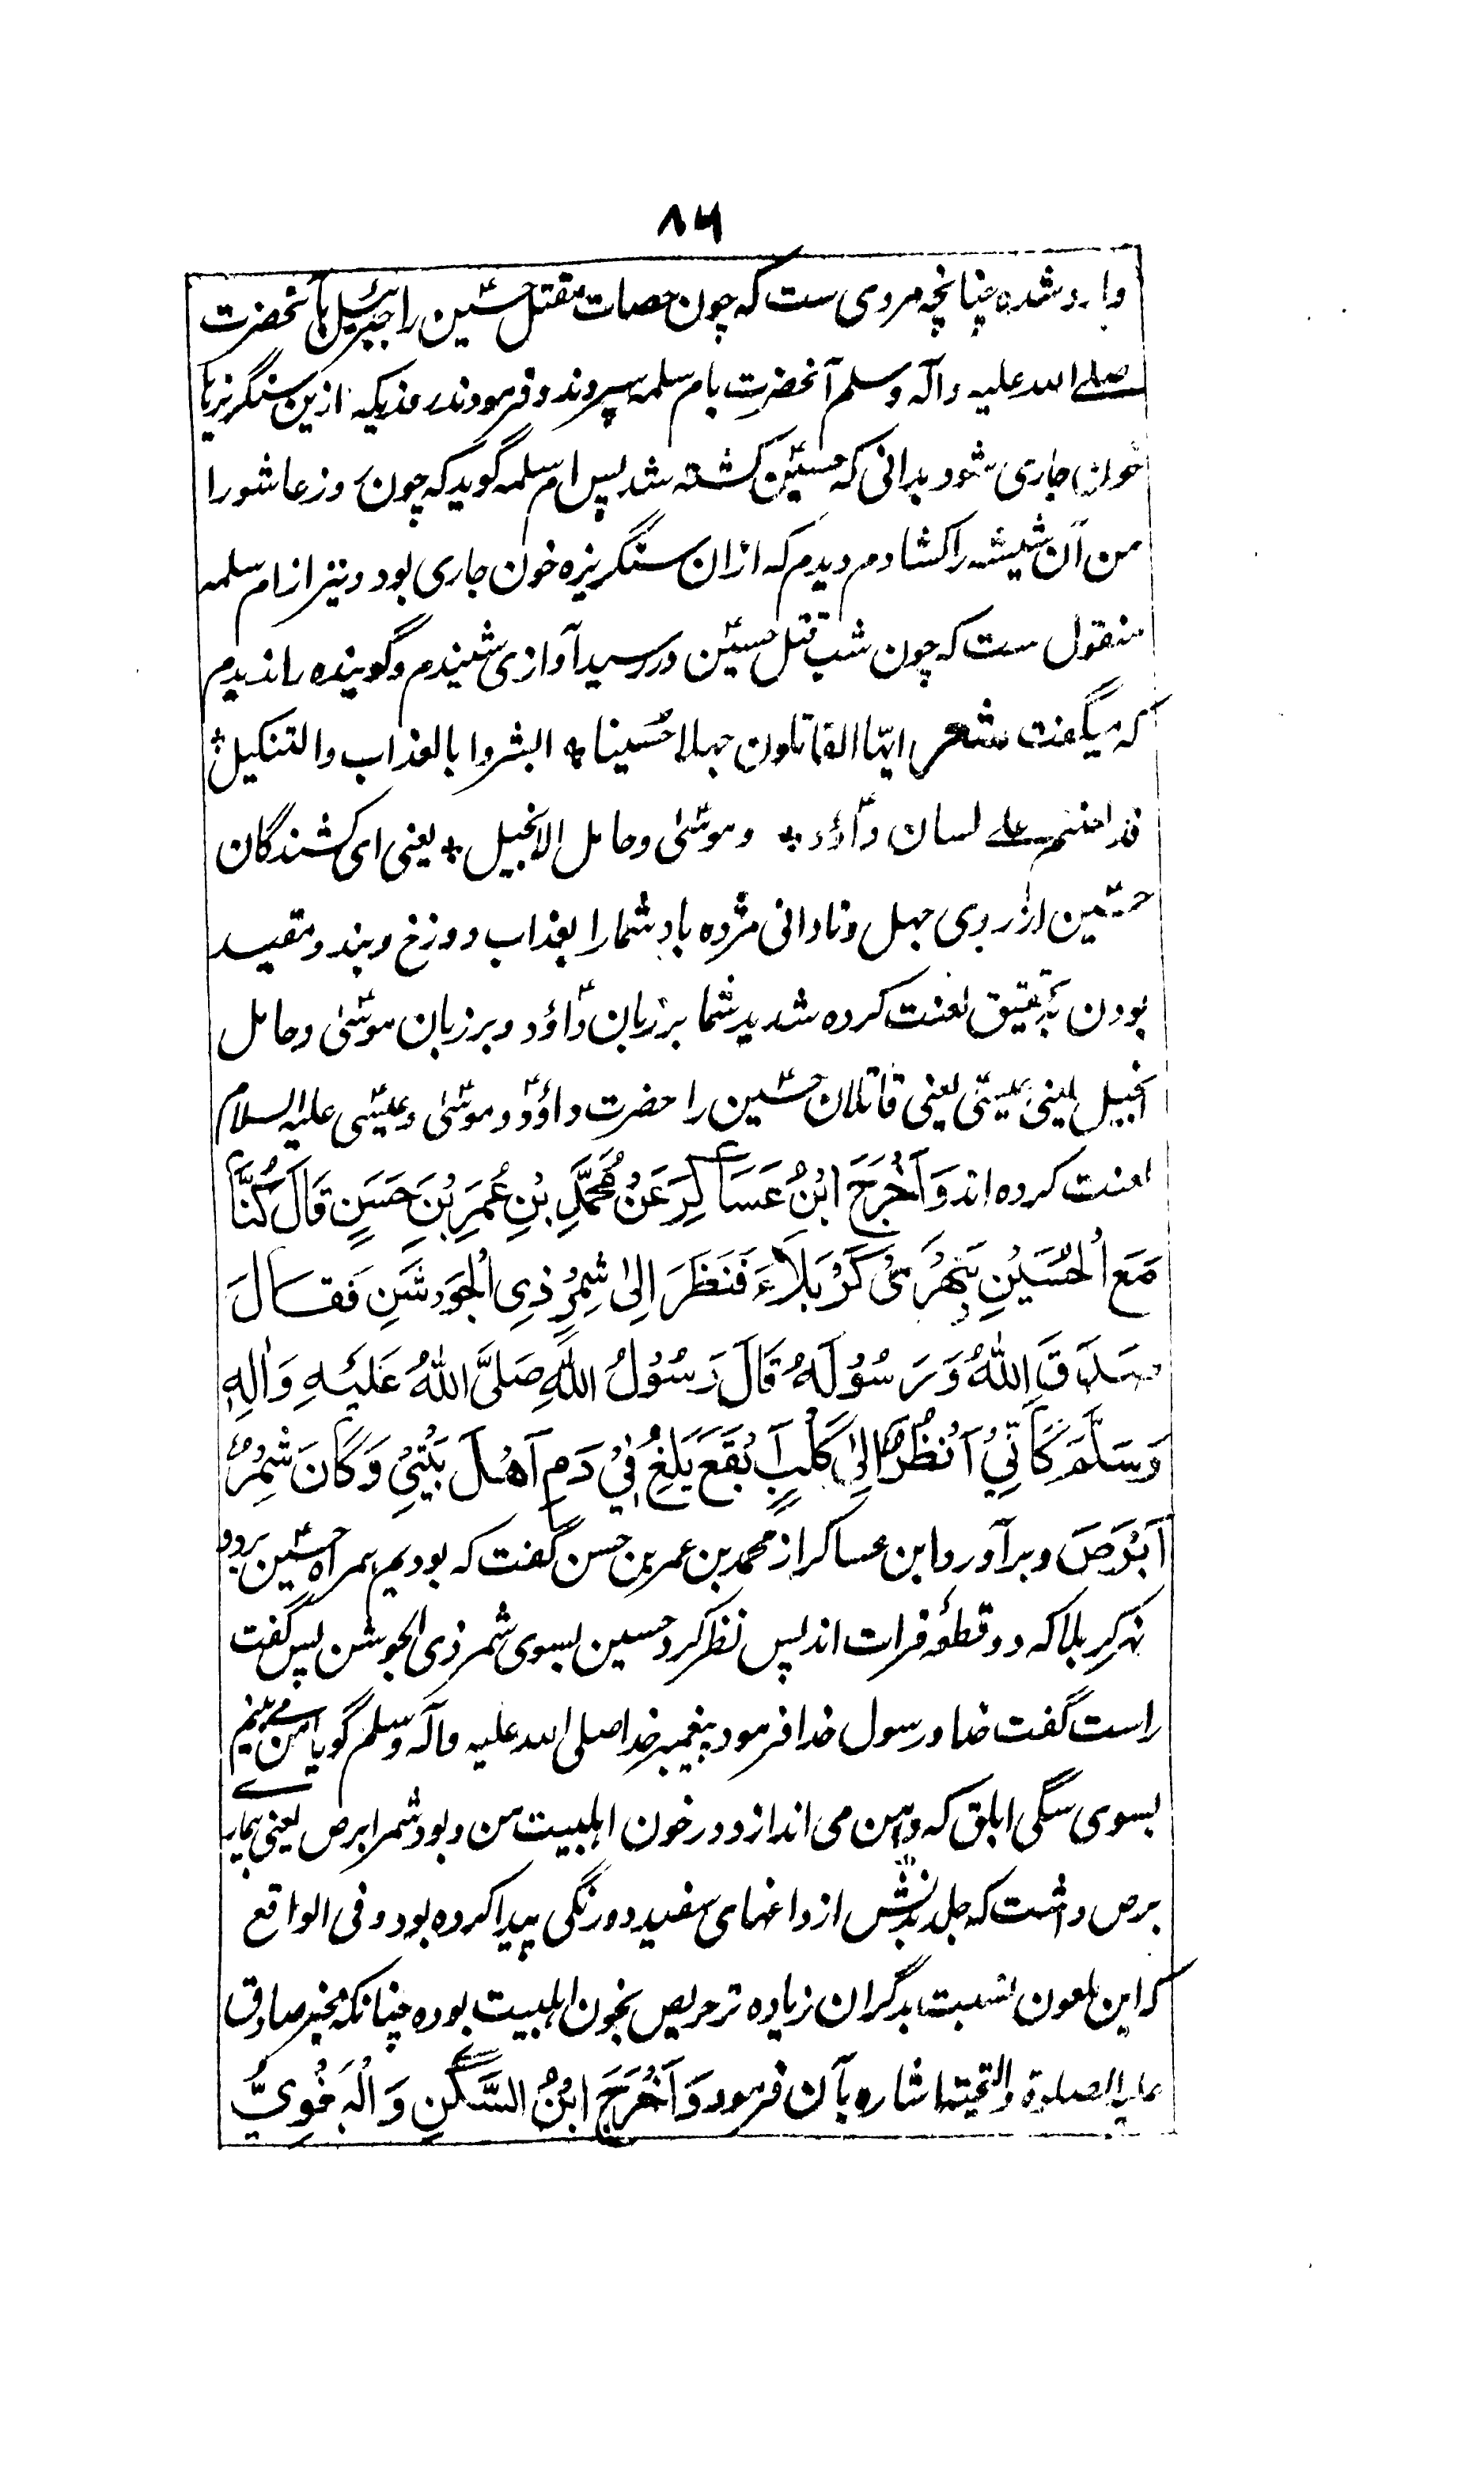 ۸۶
وارد شده چنانچه مروی ست که چون حصات مقتل حسینؑ را جبرئیل بآنحضرت
صلے الله علیه وآله وسلم آنحضرت بام سلمه سپردند و فرمودند روزیکه ازین سنگریزها
خون جاری شود بدانی که حسینؑ کشته شد پس ام سلمه گوید که چون روز عاشورا
من آن شیشه را کشادم دیدم که ازان سنگریزه خون جاری بود و نیز از ام سلمه
منقول ست که چون شب قتل حسینؑ در رسید آوازی شنیدم و گوینده را ندیدم
که میگفت شعر ایها القاتلون جهلا حُسینا * ابشروا بالعذاب والتنکیل *
قد لعنتم علے لسان داؤدؑ * وموسیٰؑ وحامل الانجیل * یعنی ای کشندگان
حسینؑ از روی جهل و نادانی مژده باد شما را بعذاب دوزخ و بند و مقید
بودن بتحقیق لعنت کرده شدید شما بر زبان داؤدؑ و بر زبان موسیٰؑ و حامل
انجیل یعنی عیسیٰؑ یعنی قاتلان حسینؑ را حضرت داؤدؑ و موسیٰؑ و عیسیٰؑ علیه السلام
لعنت کرده اند وَاَخْرَجَ ابْنُ عَسَاکِرَ عَنْ مُحَمَّدِ بْنِ عُمَرِ بْنِ حَسَنٍ قَالَ کُنَّا
مَعَ الْحُسَیْنِ بِنَهْرَیْ کَرْبَلَاءَ فَنَظَرَ اِلیٰ شِمْرِ ذِی الْجَوْشَنِ فَقَالَ
صَدَقَ اللّٰهُ وَرَسُوْلُهُ قَالَ رَسُوْلُ اللّٰهِ صَلَّی اللّٰهُ عَلَیْهِ وَاٰلِهٖ
وَسَلَّمَ کَاَنِّیْ اَنْظُرُ اِلیٰ کَلْبٍ اَبْقَعَ یَلِغُ فِیْ دَمِ اَهْلَ بَیْتِیْ وَکَانَ شِمْرُ
اَبْرَصَ و برآورد ابن عساکر از محمد بن عمر بن حسن گفت که بودیم همراه حسینؑ بر دو
نهر کربلا که دو قطعهٔ فرات اند پس نظر کرد حسین بسوی شمر ذی الجوشن پس گفت
راست گفت خدا و رسول خدا فرمود پیغمبر خدا صلی الله علیه وآله وسلم گویا من می بینم
بسوی سگی ابلق که دهن می اندازد در خون اهلبیت من و بود شمر ابرص یعنی بیماری
برص داشت که جلد بدنش از داغهای سفید دو رنگی پیدا کرده بود و فی الواقع
که این ملعون نسبت بدگران زیاده تر حریص بخون اهلبیت بوده چنانکه مخبر صادق
علیه الصلوة والتحیته اشاره بآن فرمود وَاَخْرَجَ ابْنُ السَّکَنِ وَالْبَغْوِیُّ